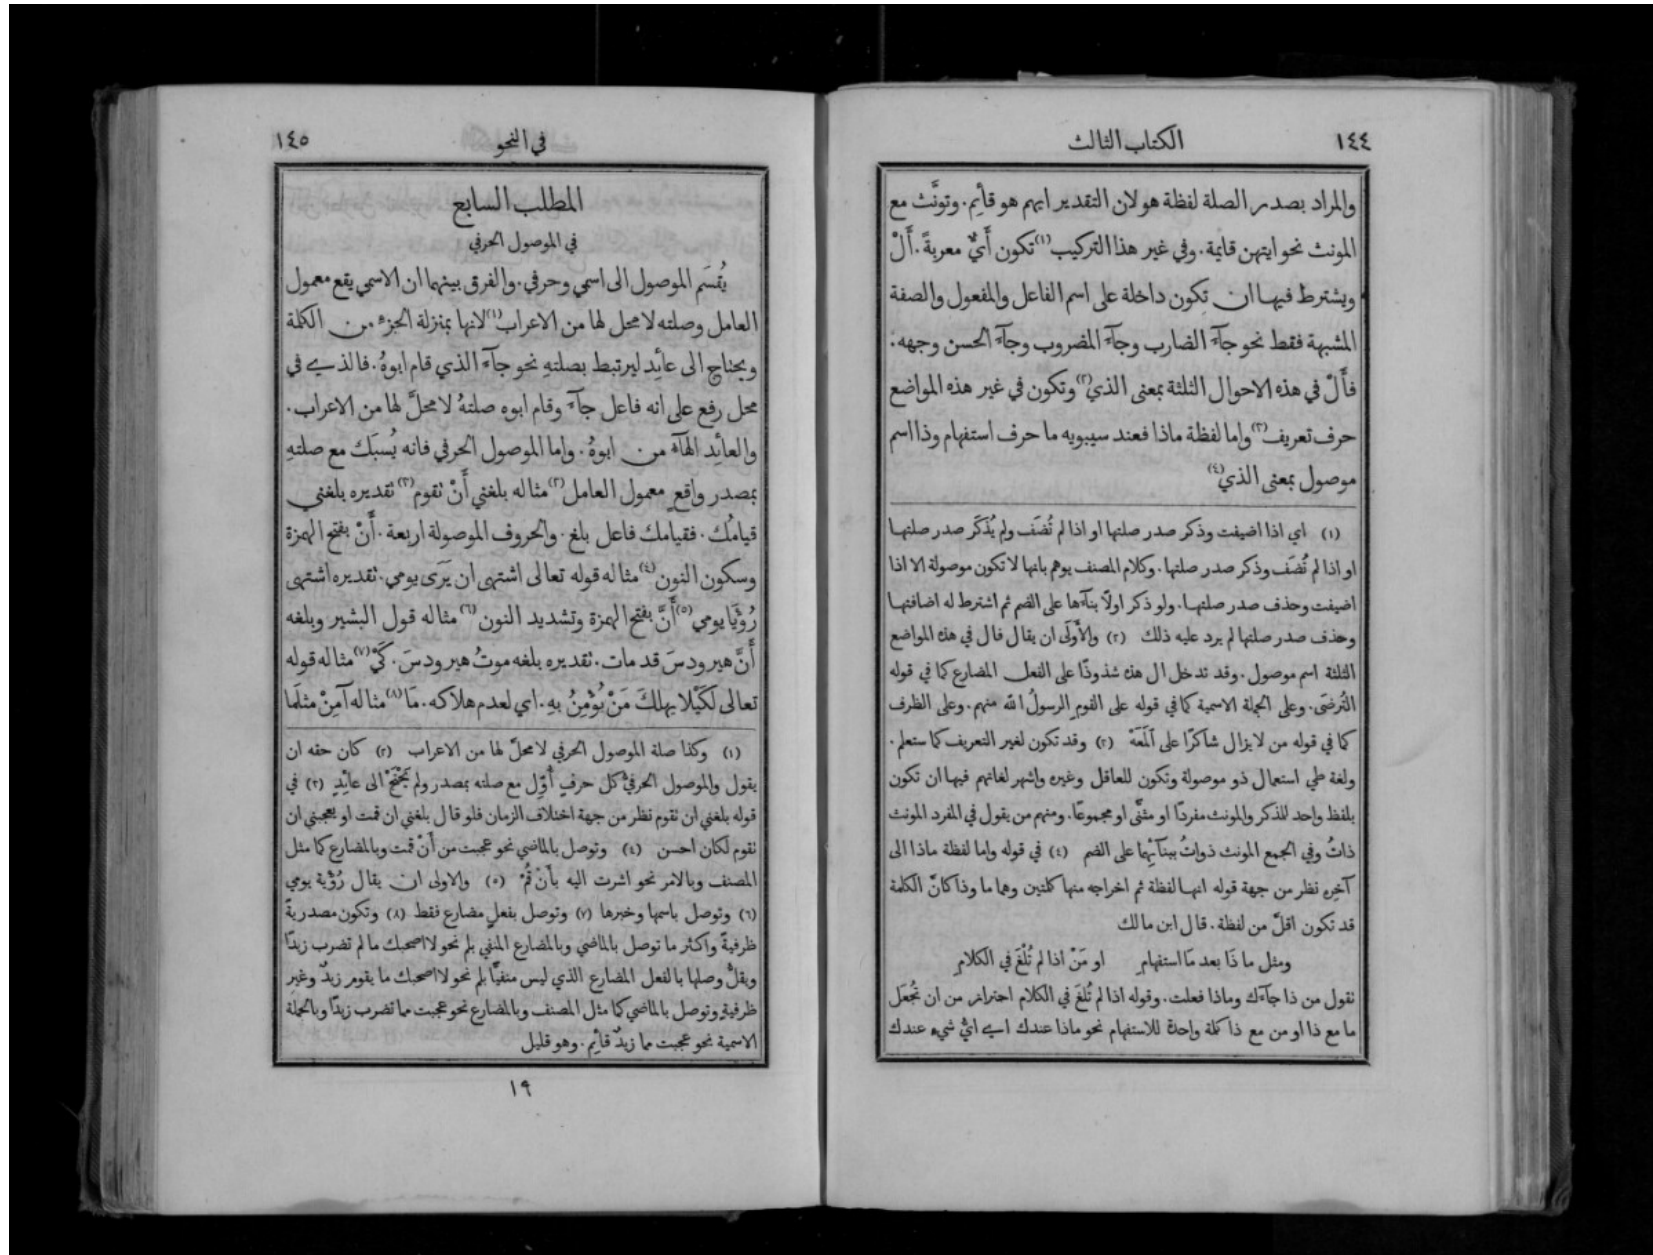 ١٤٤
الكتاب الثالث
والمراد بصدر الصلة لفظة هو لان التقدير ايهم هو قائم. وتونَّث مع
المونث نحو ايتهن قايمة. وفي غير هذا التركيب(١) تكون أَيٌّ معربةً. أَلْ
ويشترط فيها ان تكون داخلة على اسم الفاعل والمفعول والصفة
المشبهة فقط نحو جآءَ الضارب وجآءَ المضروب وجآءَ الحسن وجهه:
فأَلْ في هذه الاحوال الثلثة بمعنى الذي(٢) وتكون في غير هذه المواضع
حرف تعريف(٣) واما لفظة ماذا فعند سيبويه ما حرف استفهام وذا اسم
موصول بمعنى الذي(٤)
(١) اي اذا اضيفت وذكر صدر صلتها او اذا لم تُضَف ولم يُذكَر صدر صلتها
او اذا لم تُضَف وذكر صدر صلتها. وكلام المصنف يوهم بانها لا تكون موصولة الا اذا
اضيفت وحذف صدر صلتها. ولو ذكر اولًا بنآءها على الضم ثم اشترط له اضافتها
وحذف صدر صلتها لم يرد عليه ذلك (٢) والأَولَى ان يقال فال في هذه المواضع
الثلثة اسم موصول. وقد تدخل ال هذه شذوذًا على الفعل المضارع كما في قوله
التُرضَى. وعلى الجملة الاسمية كما في قوله على القوم الرسولُ الله منهم. وعلى الظرف
كما في قوله من لا يزال شاكرًا على المَعَهْ (٣) وقد تكون لغير التعريف كما ستعلم.
ولغة طي استعمال ذو موصولة وتكون للعاقل وغيره واشهر لغاتهم فيها ان تكون
بلفظ واحد للذكر والمونث مفردًا او مثنَّى او مجموعًا. ومنهم من يقول في المفرد المونث
ذاتُ وفي الجمع المونث ذواتُ ببنآئهما على الضم (٤) في قوله واما لفظة ماذا الى
آخرهِ نظر من جهة قوله انها لفظة ثم اخراجه منها كلمتين وهما ما وذا كانَّ الكلمة
قد تكون اقلَّ من لفظة. قال ابن مالك
ومثل ما ذَا بعد مَا استفهامِ او مَنْ اذا لم تُلْغَ في الكلامِ
نقول من ذا جآءَك وماذا فعلت. وقوله اذا لم تُلغَ في الكلام احتراز من ان تُجعَل
ما مع ذا او من مع ذا كلمة واحدة للاستفهام نحو ماذا عندك اي ايُّ شيءٍ عندك
في النحو
١٤٥
المطلب السابع
في الموصول الحرفي
يُقسَم الموصول الى اسمي وحرفي. والفرق بينهما ان الاسمي يقع معمول
العامل وصلته لا محل لها من الاعراب(١) لانها بمنزلة الجزءِ من الكلمة
ويحتاج الى عائِد ليرتبط بصلتهِ نحو جآءَ الذي قام ابوهُ. فالذي في
محل رفع على انه فاعل جآءَ وقام ابوه صلتهُ لا محلَّ لها من الاعراب.
والعائِد الهآءُ من ابوهُ. واما الموصول الحرفي فانه يُسبَك مع صلتهِ
بمصدر واقعٍ معمول العامل(٢) مثاله بلغني أَنْ تقوم(٣) تقديره بلغني
قيامُك. فقيامك فاعل بلغ. والحروف الموصولة اربعة. أَنْ بفتح الهمزة
وسكون النون(٤) مثاله قوله تعالى اشتهى ان يَرَى يومي. تقديره اشتهى
رُؤْيَا يومي(٥) أَنَّ بفتح الهمزة وتشديد النون(٦) مثاله قول البشير وبلغه
أَنَّ هيرودسَ قد مات. تقديره بلغه موتُ هيرودسَ. كَيْ(٧) مثاله قوله
تعالى لكَيْلا يهلكَ مَنْ يُؤْمِنُ بهِ. اي لعدم هلاكه. مَا(٨) مثاله آمِنْ مثلَما
(١) وكذا صلة الموصول الحرفي لا محلَّ لها من الاعراب (٢) كان حقه ان
يقول والموصول الحرفيُّ كل حرفٍ أُوِّل مع صلته بمصدر ولم يَحْتَجْ الى عائِدٍ (٣) في
قوله بلغني ان تقوم نظر من جهة اختلاف الزمان فلو قال بلغني ان قمت او يعجبني ان
تقوم لكان احسن (٤) وتوصل بالماضي نحو عجبت من أَنْ قمت وبالمضارع كما مثل
المصنف وبالامر نحو اشرت اليه بأَنْ قُمْ (٥) والاولى ان يقال رُؤْية يومي
(٦) وتوصل باسمها وخبرها (٧) وتوصل بفعلٍ مضارع فقط (٨) وتكون مصدريةً
ظرفيةً واكثر ما توصل بالماضي وبالمضارع المنفي بلم نحو لا اصحبك ما لم تضرب زيدًا
ويقلُّ وصلها بالفعل المضارع الذي ليس منفيًّا بلم نحو لا اصحبك ما يقوم زيدٌ وغير
ظرفيةٍ وتوصل بالماضي كما مثل المصنف وبالمضارع نحو عجبت مما تضرب زيدًا وبالجملة
الاسمية نحو عجبت مما زيدٌ قائِم. وهو قليل
١٩